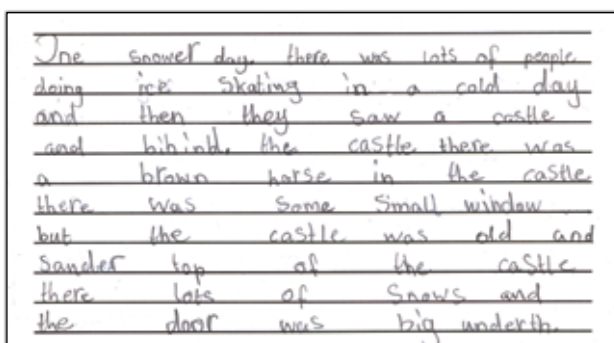 One snower day. there was lots of people
doing ice skating in a cold day
and then they saw a castle
and bihind. the castle there was
a brown horse in the castle
there was some small window
but the castle was old and
sander top of the castle
there lots of snows and
the door was big underth.